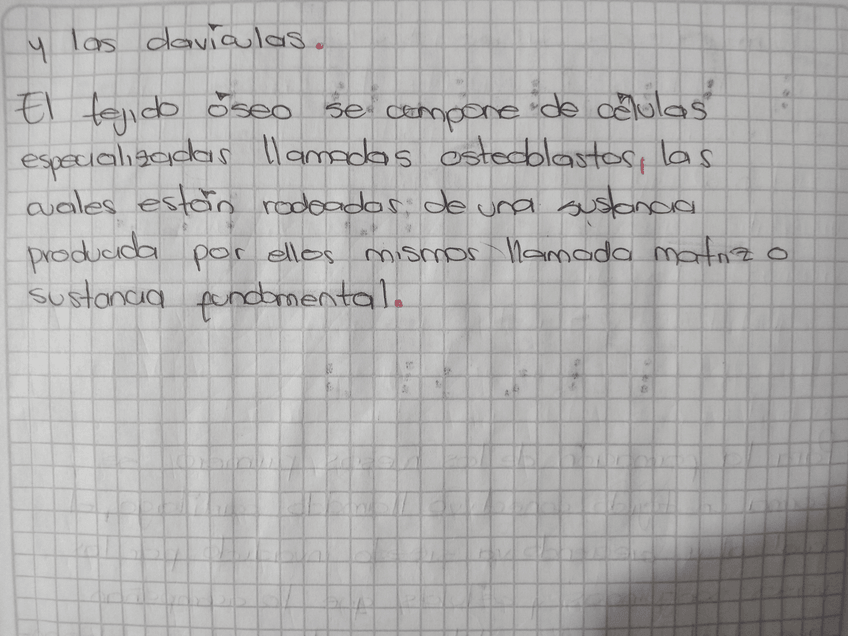 y las clavículas.
El tejido óseo se compone de células
especializadas llamadas osteoblastos, las
cuales están rodeadas de una sustancia
producida por ellos mismos llamada matriz o
sustancia fundamental.